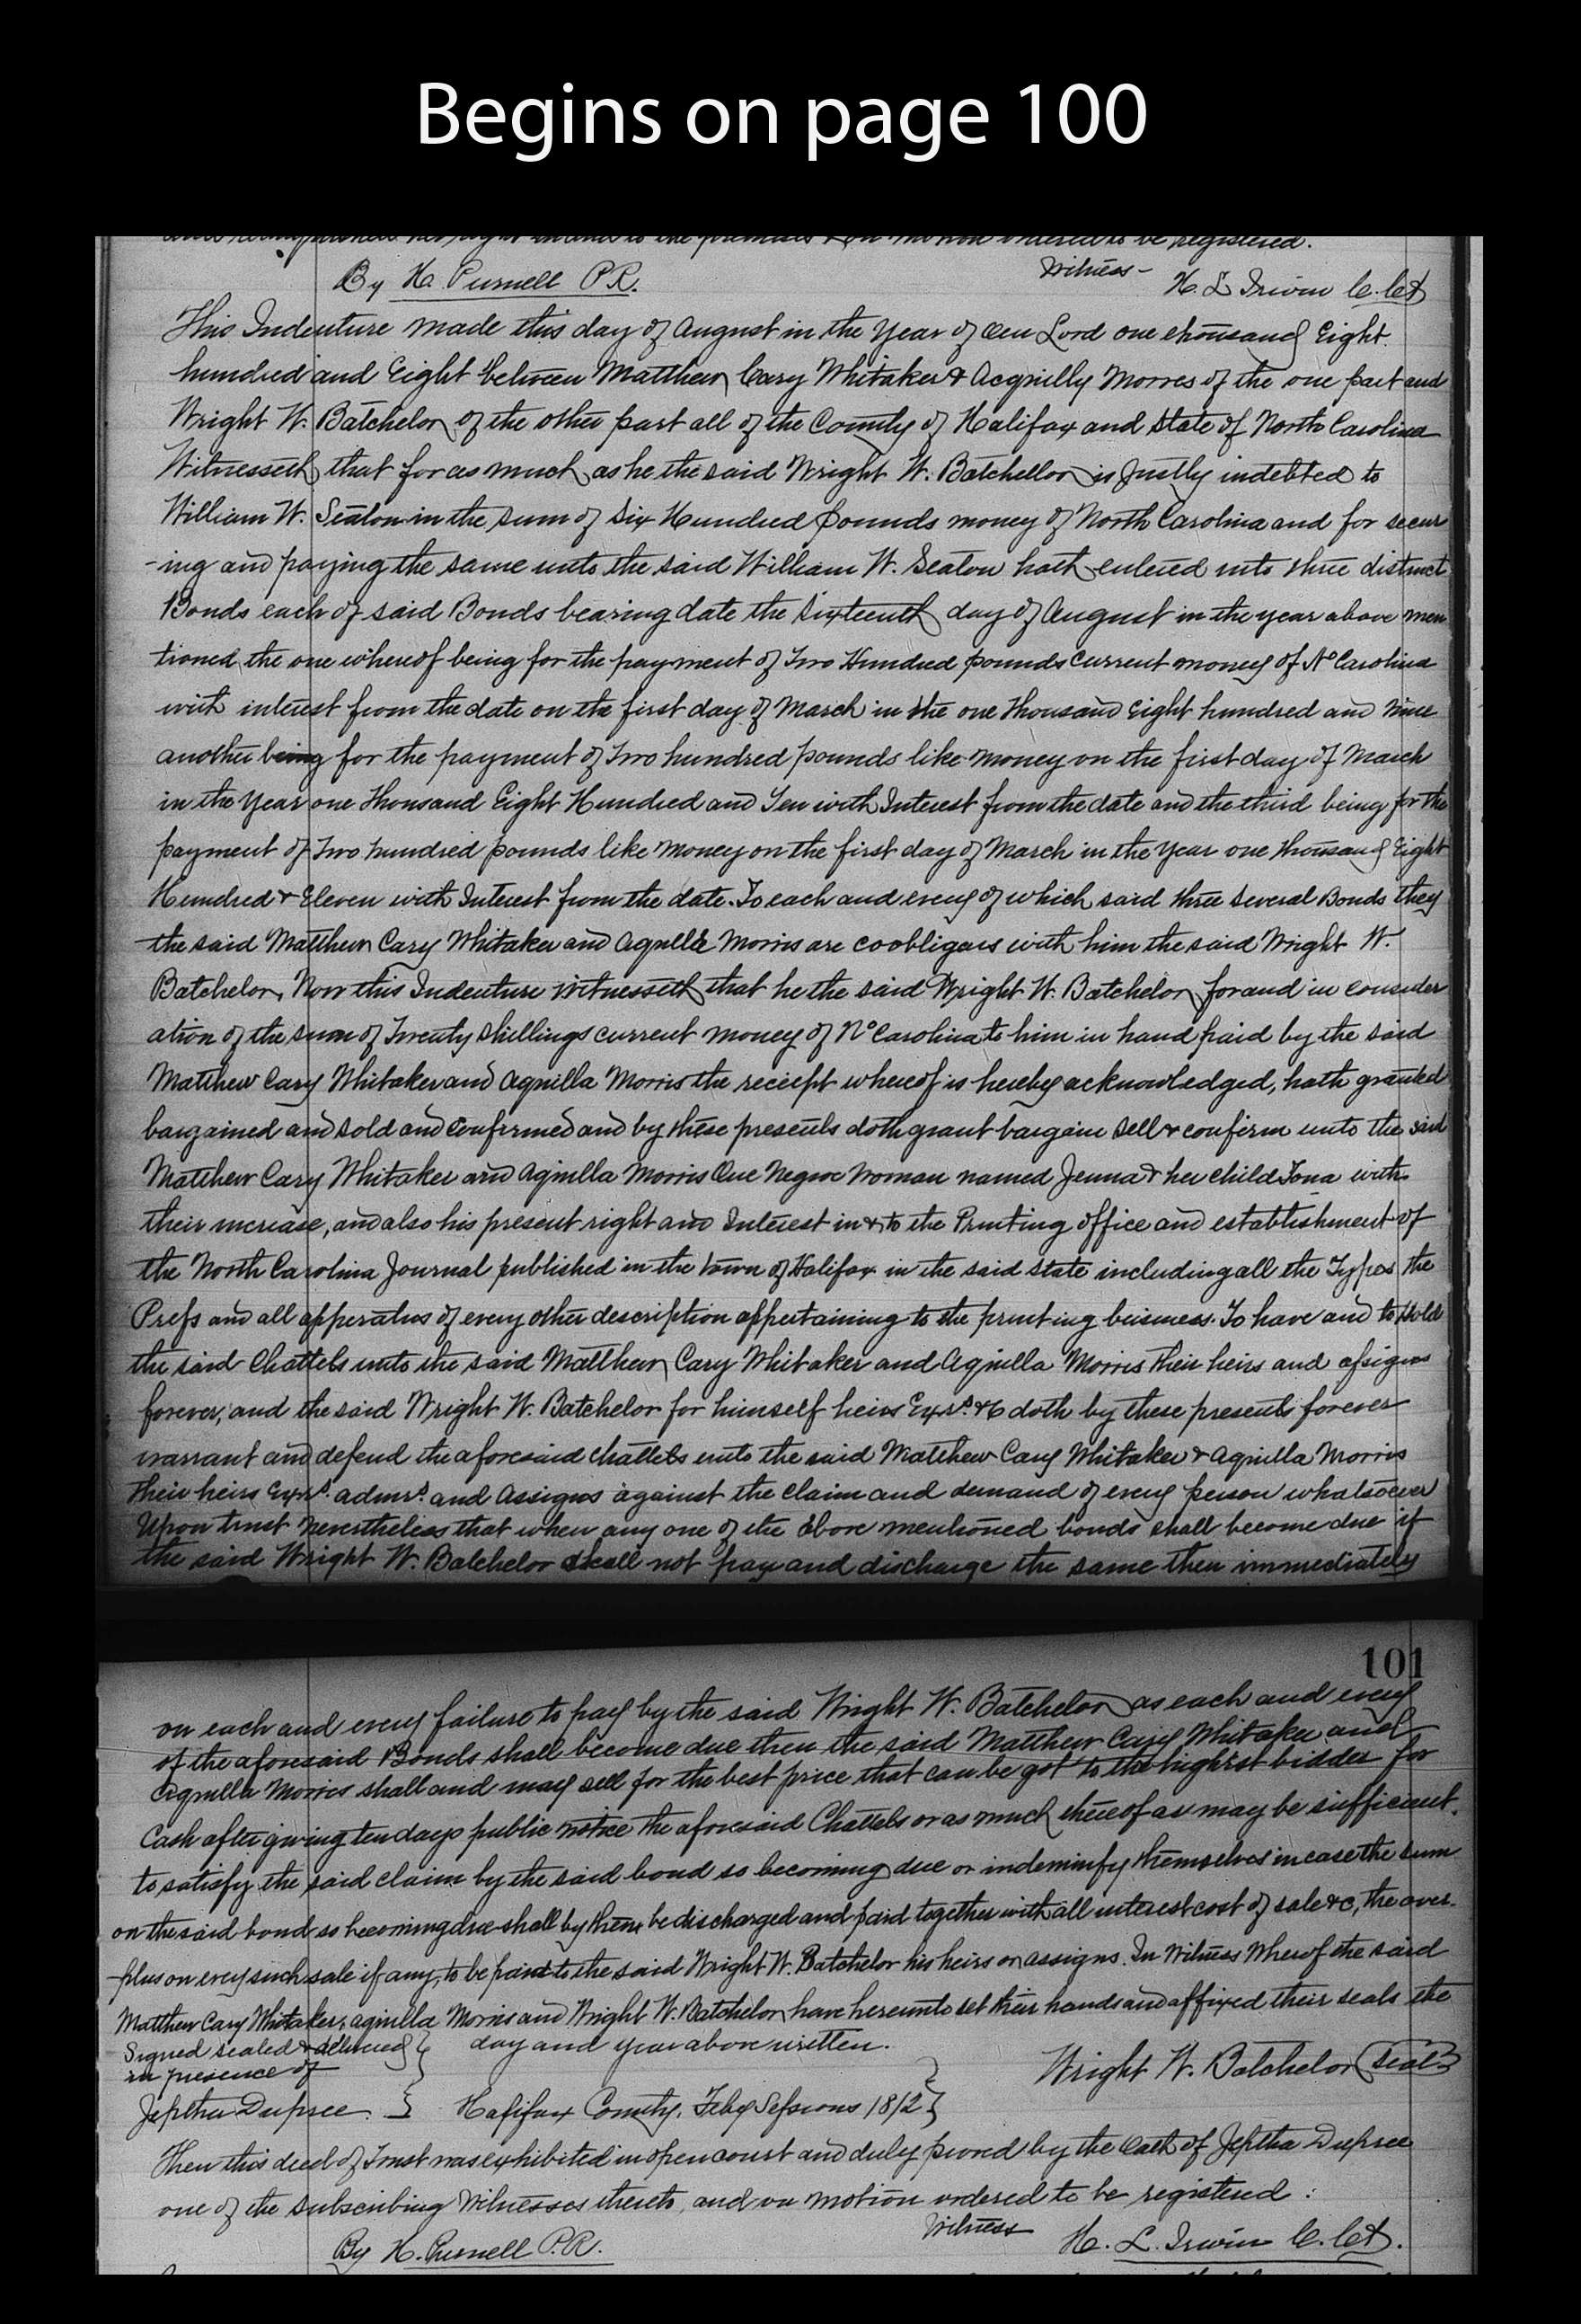 Begins on page 100
and relinquished her right in and to the premises & on motion ordered to be registered.
Witness -
By H. Pursnell P.R. H. L Irwin C. Ct
This Indenture made this day of August in the Year of Our Lord one thousand Eight
hundred and Eight between Matthew Cary Whitaker & Acquilly Morres of the one part and
Wright W. Batchelor of the other part all of the County of Halifax and State of North Carolina
Witnesseth that for as much as he the said Wright W. Batchellor is Justly indebted to
William W. Seaton in the sum of Six Hundred pounds money of North Carolina and for secur
-ing and paying the same unto the said William W. Seaton hath entered into three distinct
Bonds each of said Bonds bearing date the Sixteenth day of August in the year above men
tioned, the one whereof being for the payment of Two Hundred pounds current money of No Carolina
with interest from the date on the first day of March in the one Thousand Eight hundred and Nine
another being for the payment of Two hundred pounds like money on the first day of March
in the Year one Thousand Eight Hundred and Ten with Interest from the date and the third being for the
payment of Two hundred pounds like money on the first day of March in the Year one thousand Eight
Hundred & Eleven with Interest from the date. To each and every of which said three several Bonds they
the said Matthew Cary Whitaker and Aquilla Morris are coobligors with him the said Wright W.
Batchelor, Now this Indenture witnesseth that he the said Wright W. Batchelor for and in consider
ation of the sum of Twenty Shillings current money of No Carolina to him in hand paid by the said
Matthew Cary Whitaker and Aquilla Morris the receipt whereof is hereby acknowledged, hath granted
bargained and sold and confirmed and by these presents doth grant bargain sell & confirm unto the said
Matthew Cary Whitaker and Aquilla Morris One Negroe Woman named Jenna & her child Tona with
their increase, and also his present right and Interest in & to the Printing office and establishment of
the North Carolina Journal published in the town of Halifax in the said state including all the Types the
Press and all apperatus of every other description appertaining to the printing buisness. To have and to Hold
the said Chattels unto the said Matthew Cary Whitaker and Aquilla Morris their heirs and assigns
forever, and the said Wright W. Batchelor for himself heirs Exrs. &c doth by these presents forever
warrant and defend the aforesaid chattels unto the said Matthew Cary Whitaker & Aquilla Morris
their heirs Exrs. admrs. and Assigns against the claim and demand of every person whatsoever
Upon trust nevertheless that when any one of the above mentioned bonds shall become due if
the said Wright W. Batchelor shall not pay and discharge the same then immediately
101
on each and every failure to pay by the said Wright W. Batchelor as each and every
of the aforesaid Bonds shall become due then the said Matthew Cary Whitaker and
Aquilla Morris shall and may sell for the best price that can be got to the highest bidder for
Cash after giving ten days public notice the aforesaid Chattels or as much thereof as may be sufficient
to satisfy the said claim by the said bond so becoming due or indeminfy themselves in case the sum
on the said bond so becoming due shall by them be discharged and paid together with all interest cost of sale &c, the over-
-plus on every such sale if any, to be paid to the said Wright W. Batchelor his heirs or assigns. In Witness Wherof the said
Matthew Cary Whitaker, Aquilla Morris and Wright W. Batchelor have hereunto set their hands and affixed their seals the
Signed sealed & delivered } day and year above written.
in presence of Wright W. Batchelor (Seal)
Jeptha Dupree. } Halifax County, Feby Sessions 1812 }
Then this deed of Trust was exhibited in open court and duly proved by the Oath of Jeptha Dupree
one of the subscribing Witnesses thereto, and on motion ordered to be registered :
Witness
By H. Pursnell P.R. H. L. Irwin C. Ct.